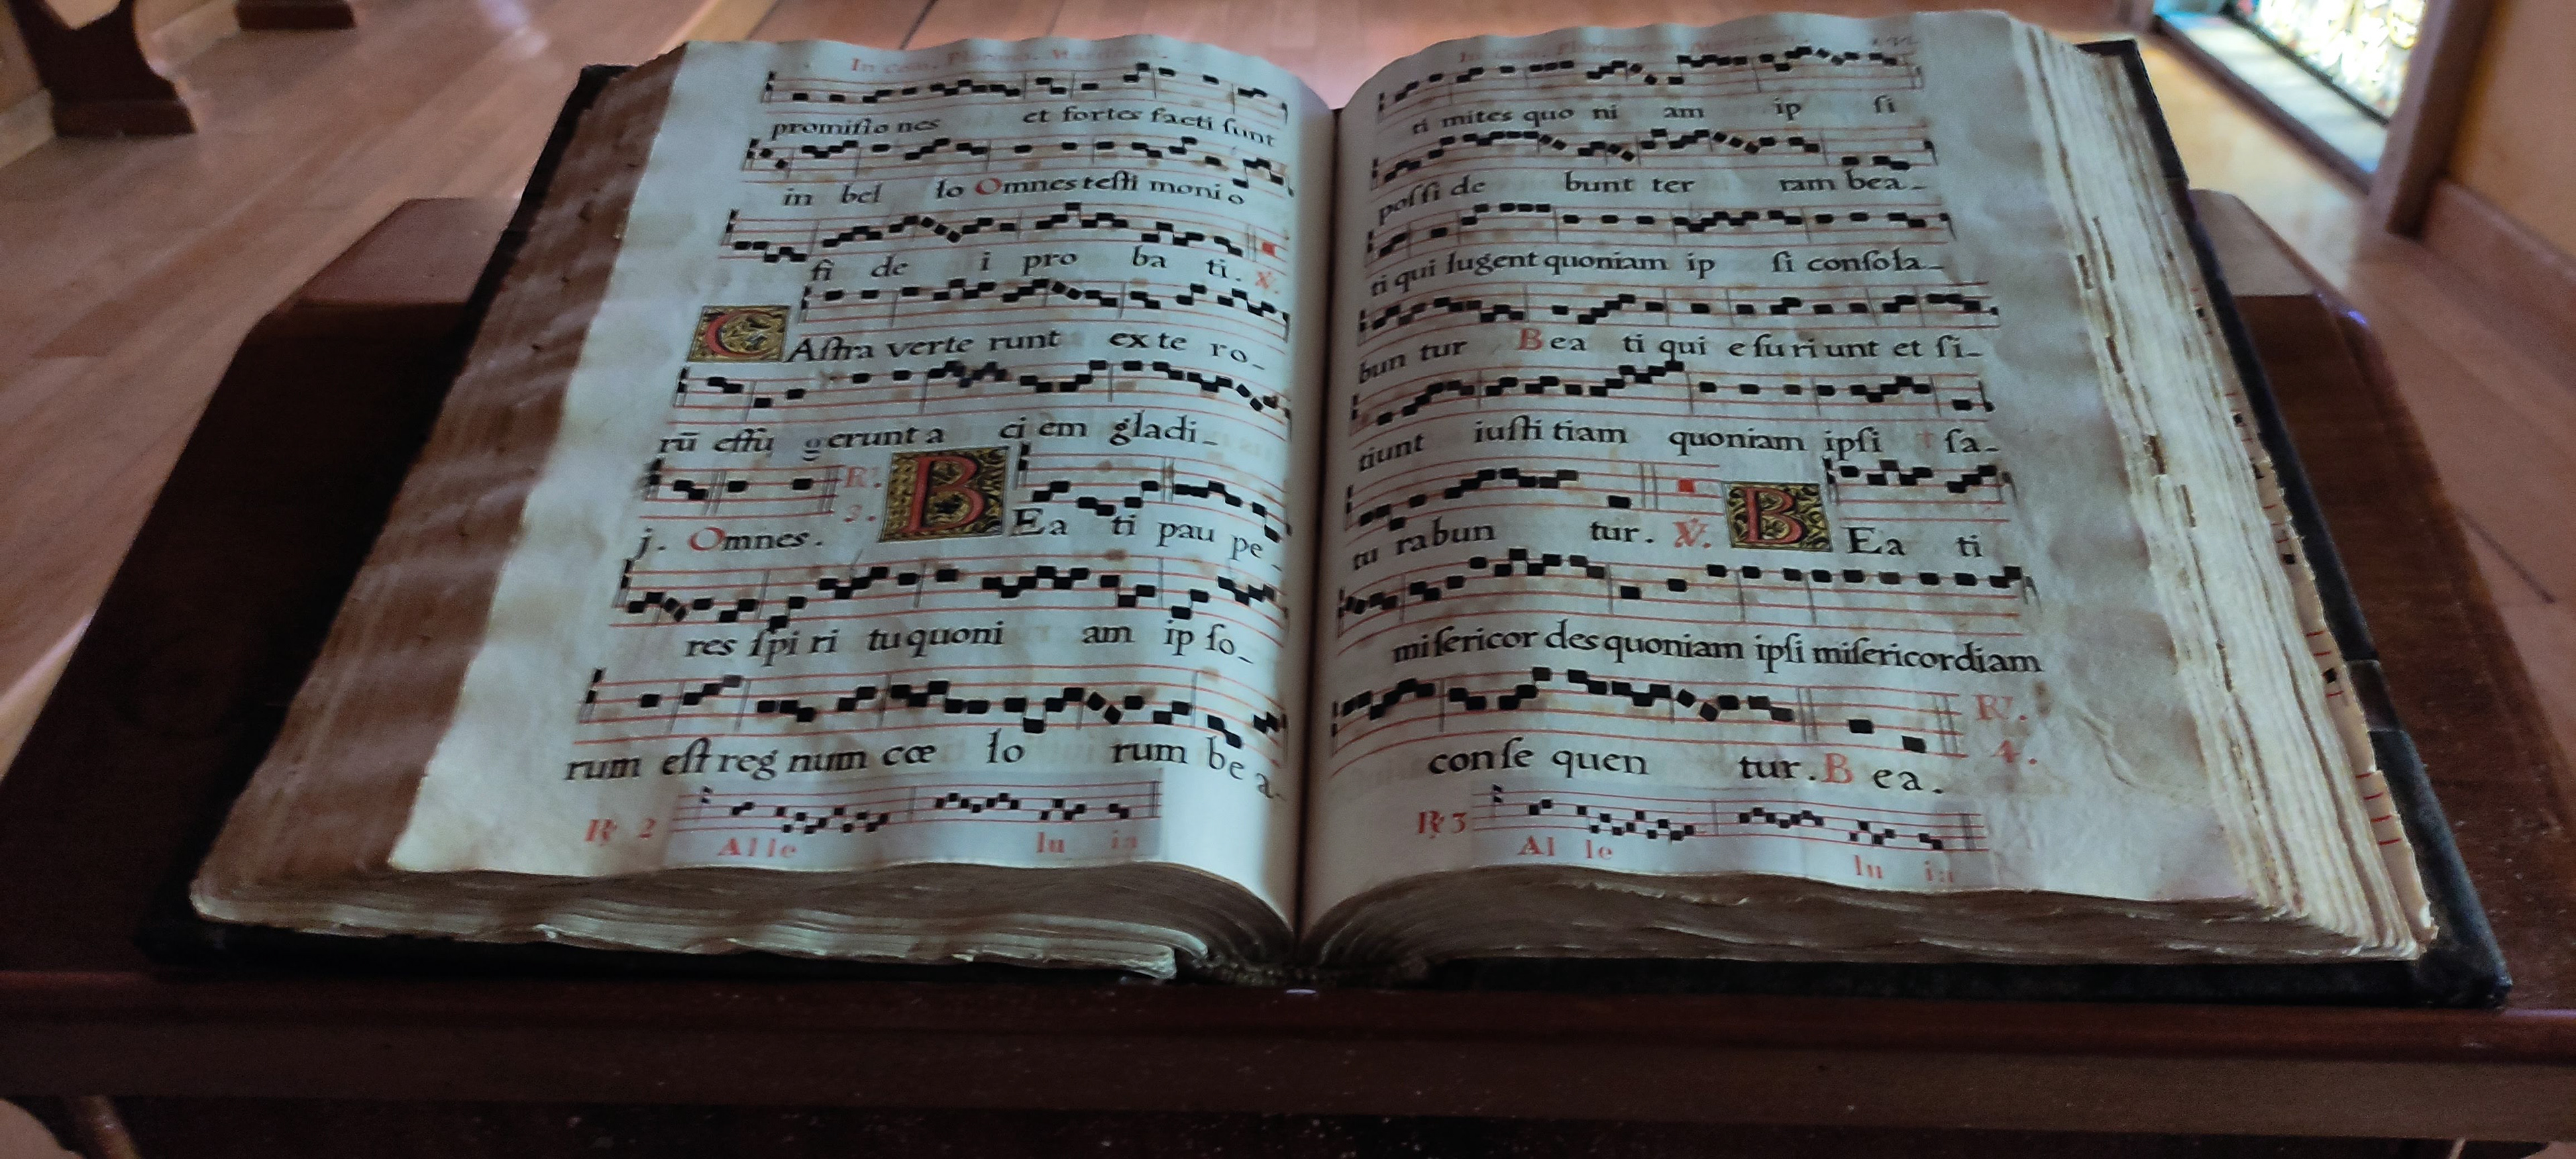 In com. Plurimo. Martirum.
promiſio nes et fortes facti ſunt
in bel lo Omnes teſti moni o
fi de i pro ba ti. ℣.
C Aſtra verte runt ex te ro-
rū effu gerunt a ci em gladi-
j. Omnes. R. 3. B Ea ti pau pe-
res ſpi ri tu quoni am ip ſo-
rum eſt reg num cœ lo rum be a-
℟ 2 Al le lu ia
In com. Plurimorum Martirum.
ti mites quo ni am ip ſi
poſſi de bunt ter ram bea-
ti qui lugent quoniam ip ſi conſola-
bun tur Bea ti qui eſuriunt et ſi-
tiunt iuſti tiam quoniam ipſi ſa-
tu rabun tur. ℣. B Ea ti
miſericor des quoniam ipſi miſericordiam
conſe quen tur. Bea. R. 4.
℟ 3 Al le lu ia